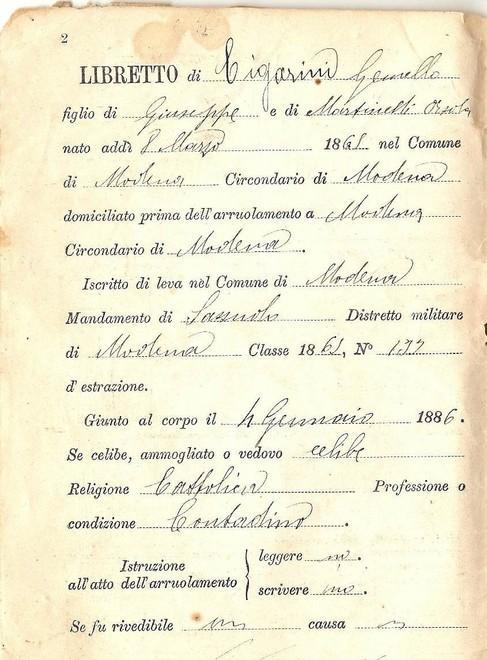 2
LIBRETTO di Cigarini Gemello
figlio di Giuseppe e di Martinelli Orsola
nato addì 8 Marzo 1861 nel Comune
di Modena Circondario di Modena
domiciliato prima dell'arruolamento a Modena
Circondario di Modena.
Iscritto di leva nel Comune di Modena
Mandamento di Sassuolo Distretto militare
di Modena Classe 1861, N°
d'estrazione.
Giunto al corpo il 4 Gennaio 1886.
Se celibe, ammogliato o vedovo celibe
Religione Cattolica Professione o
condizione Contadino.
Istruzione
all'atto dell'arruolamento
leggere no.
scrivere no.
Se fu rivedibile causa